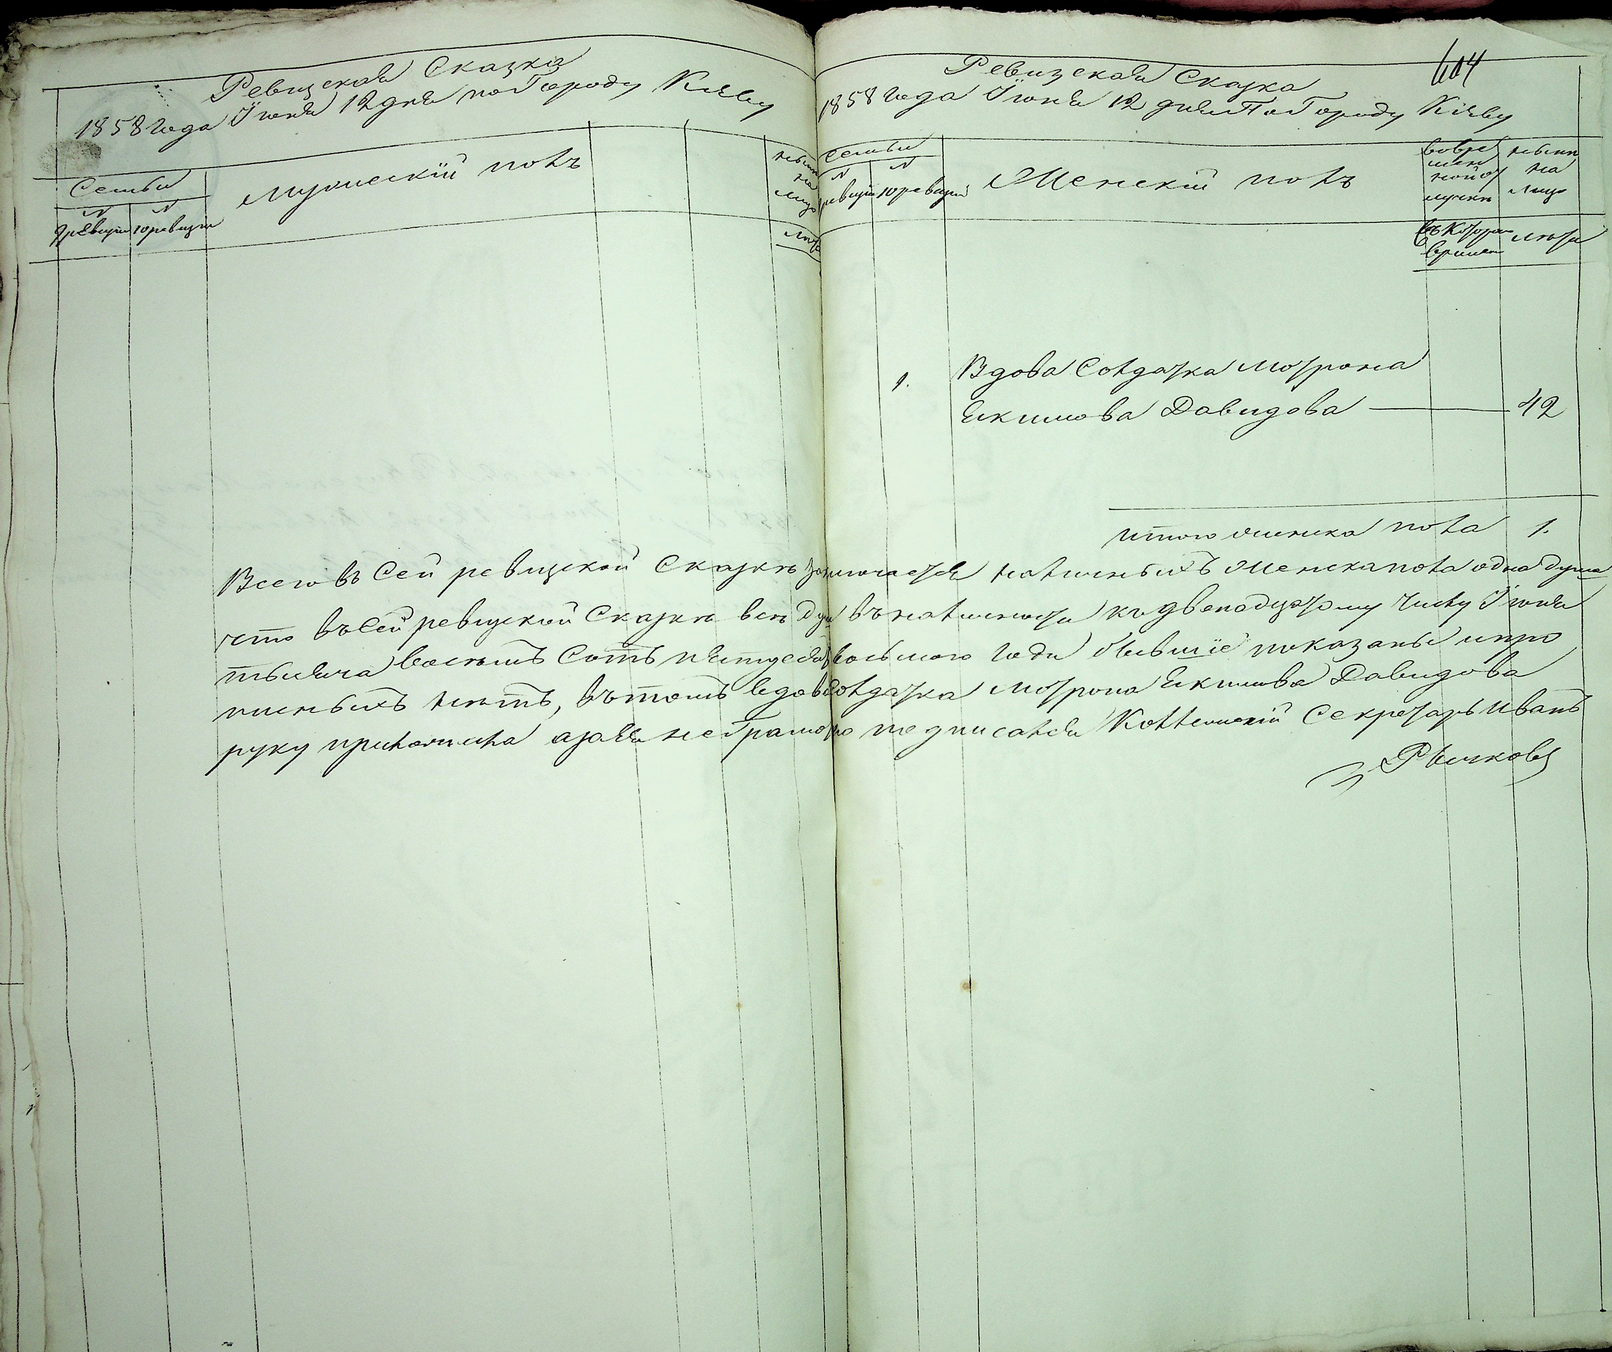 Ревизская Сказка
1858 года Іюня 12 дня по Городу Кіеву
Семьи
Мужескій полъ
№ 9 ревизіи
№ 10 ревизіи
нын
на
лицо
лета
604
Ревизская Сказка
1858 года Іюня 12 дня По Городу Кіеву
Семьи
Женскій полъ
№ ревизіи
№ 10 ревизіи
во вре
мен
ной от
лучки
нынѣ
на
лицо
лѣта
1.
Вдова Солдатка Матрона
Екимова Давидова — 42
итого женска пола 1.
Всего въ Сей ревизской Сказкѣ заключается наличныхъ женска пола одна душа
что въ Сей ревизской Сказкѣ всѣ души въ наличности къ двенадцатому числу Іюня
тысяча восемь Сотъ пятдесят восьмого года бывшіе показаны и про
писныхъ нѣтъ, въ томъ вдова Солдатка Матрона Екимова Давидова
руку приложила а за Ея неграмотно подписался Коллежскій Секретарь Иванъ
Рычковъ